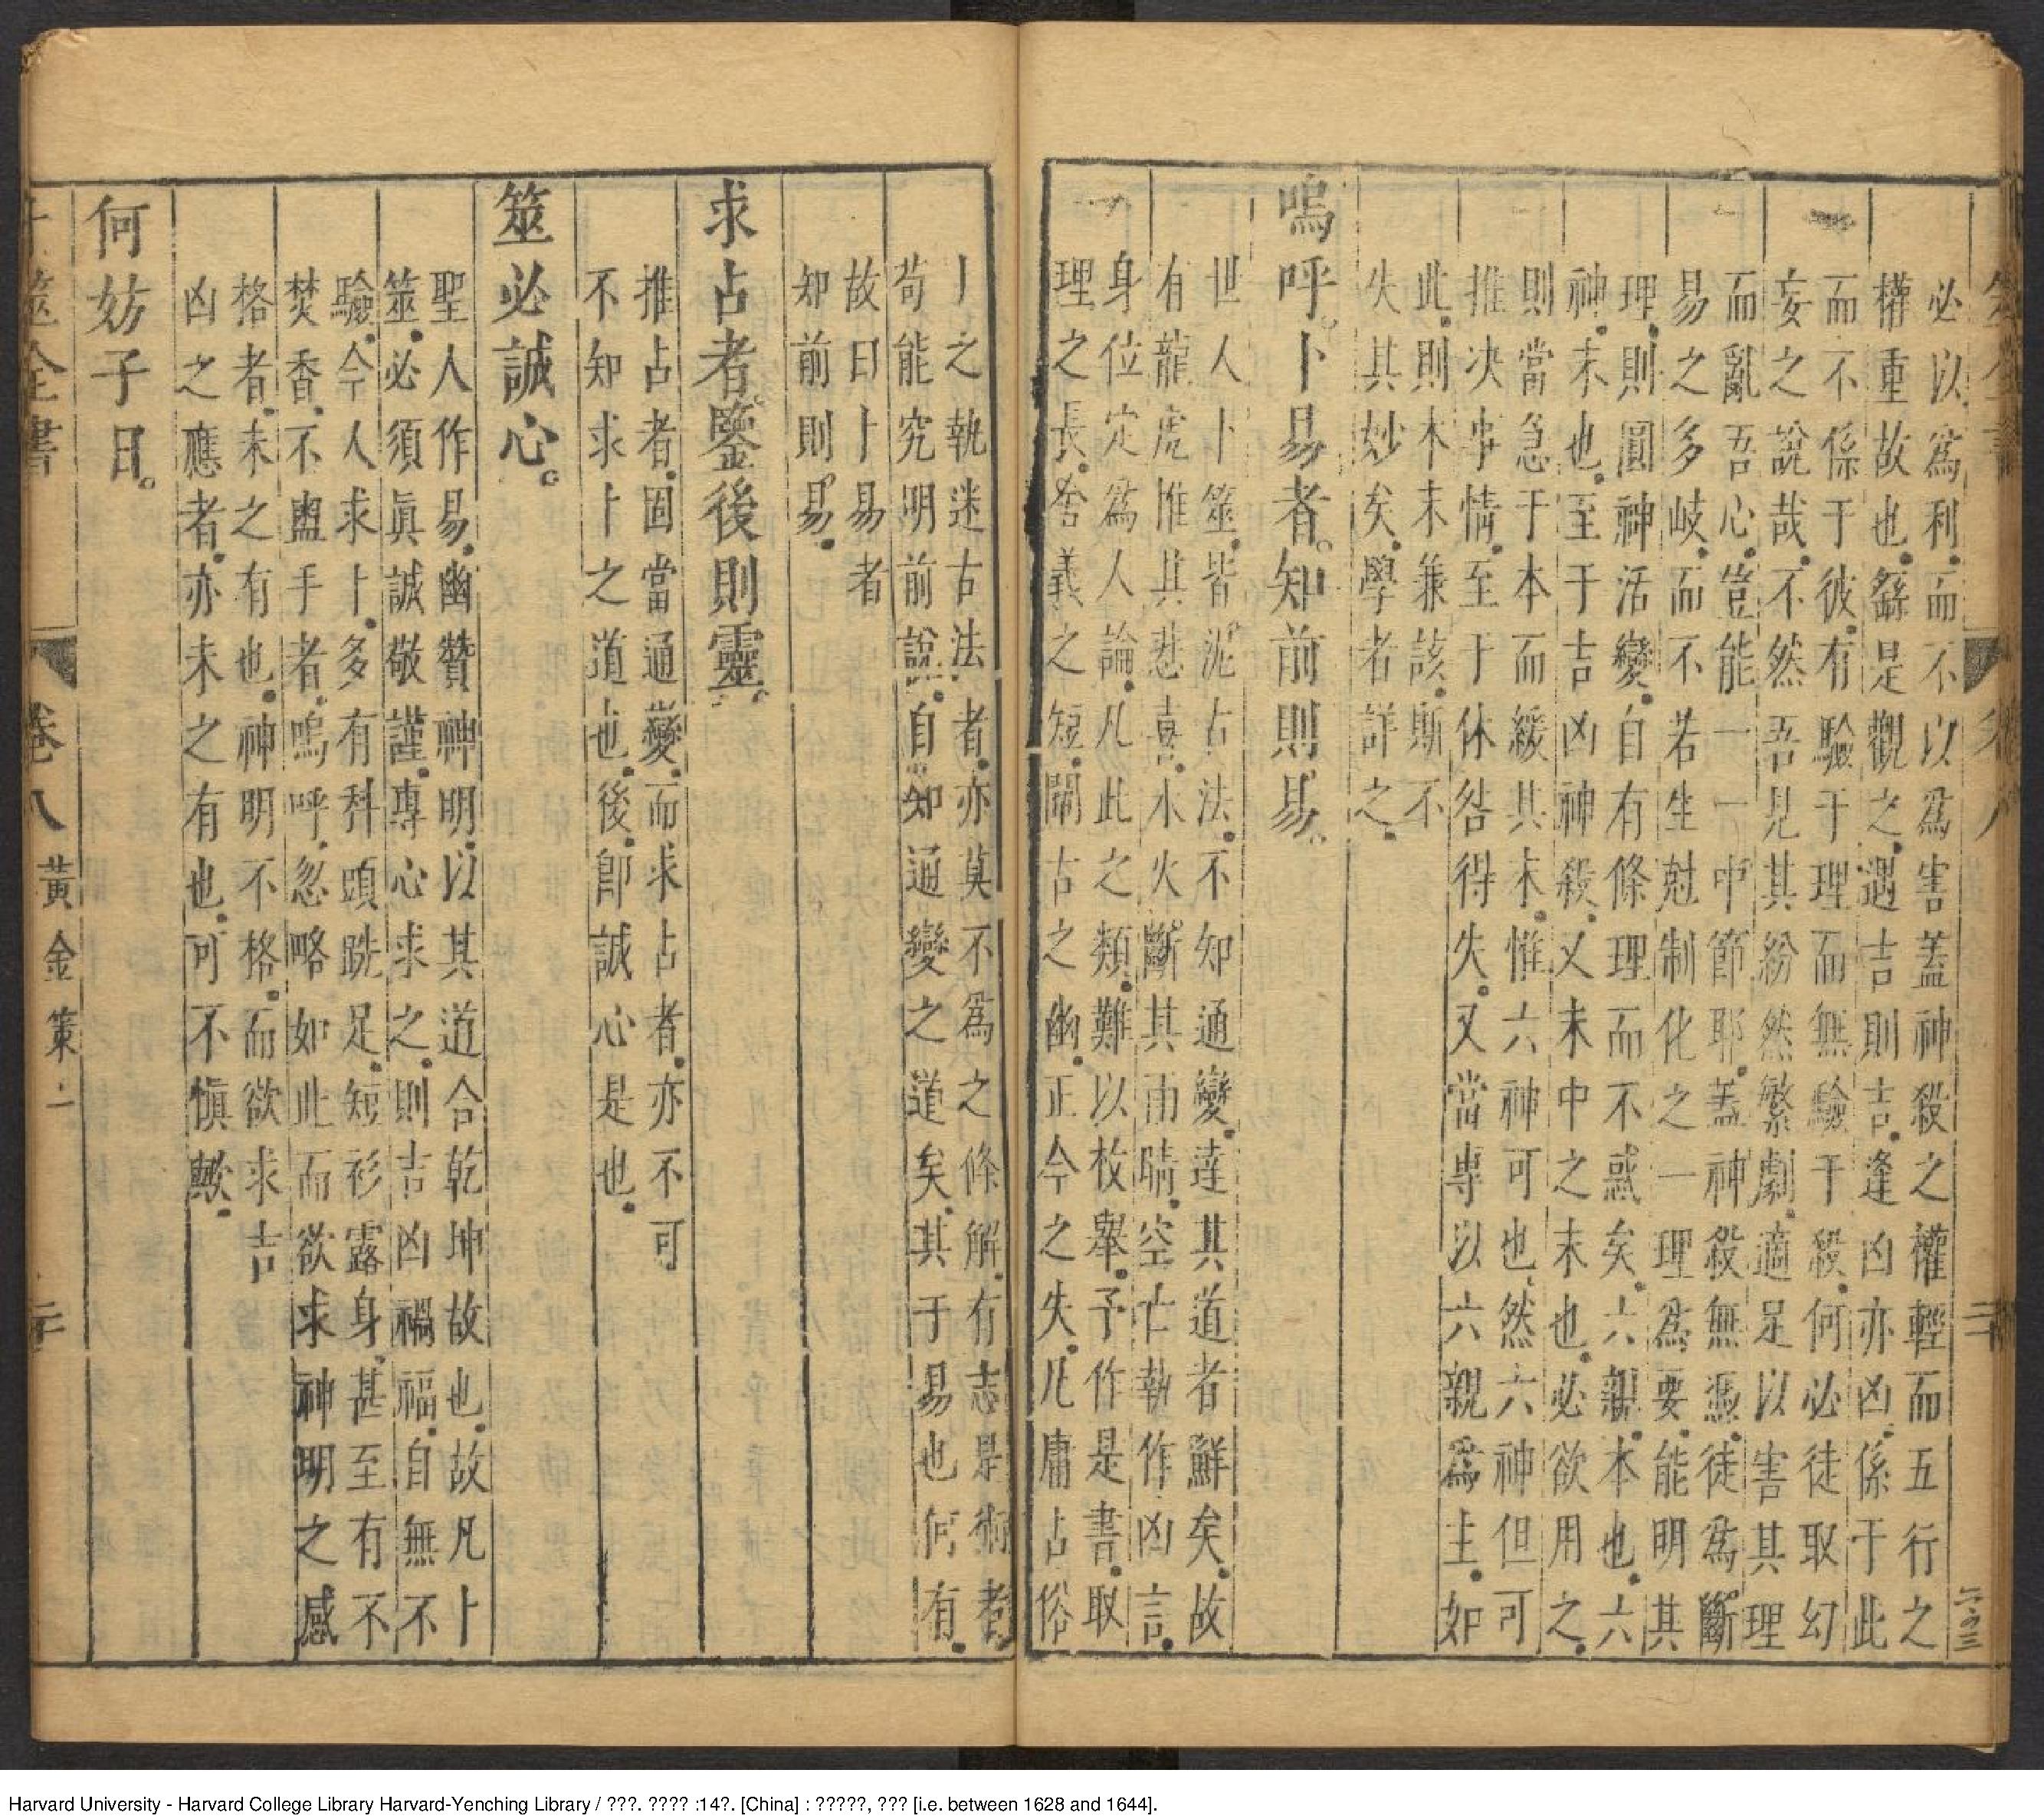 必以爲利而不以爲害蓋神殺之權輕而五行之
權重故也繇是觀之遇吉則吉逢凶亦凶係于此
而不係于彼有驗于理而無驗于殺何必徒取幻
妄之說哉不然吾見其紛然繁劇適足以害其理
而亂吾心豈能一一中節耶蓋神殺無憑徒爲斷
易之多岐而不若生尅制化之一理爲要能明其
理則圓神活變自有條理而不惑矣六親本也六
神末也至于吉凶神殺又末中之末也必欲用之
則當急于本而緩其末惟六神可也然六神但可
推决事情至于休咎得失又當專以六親爲主如
此則本末兼該斯不
失其妙矣學者詳之
嗚呼卜易者知前則易
世人卜筮皆泥古法不知通變達其道者鮮矣故
有龍虎惟其悲喜水火斷其雨晴空亡執作凶言
身位定爲人論凡此之類難以枚舉予作是書取
理之長舍義之短闡古之幽正今之失凡庸占俗
卜之執迷古法者亦莫不爲之條解有志是術者
苟能究明前說自知通變之道矣其于易也何有
故曰卜易者
知前則易
求占者鑒後則靈
推占者固當通變而求占者亦不可
不知求卜之道也後卽誠心是也
筮必誠心
聖人作易幽贊神明以其道合乾坤故也故凡卜
筮必須眞誠敬謹專心求之則吉凶禍福自無不
驗今人求卜多有科頭跣足短衫露身甚至有不
焚香不盥手者嗚呼忽略如此而欲求神明之感
格者未之有也神明不格而欲求吉
凶之應者亦未之有也可不慎歟
何妨子日
卜筮全書
卷八
黃金策二
二十